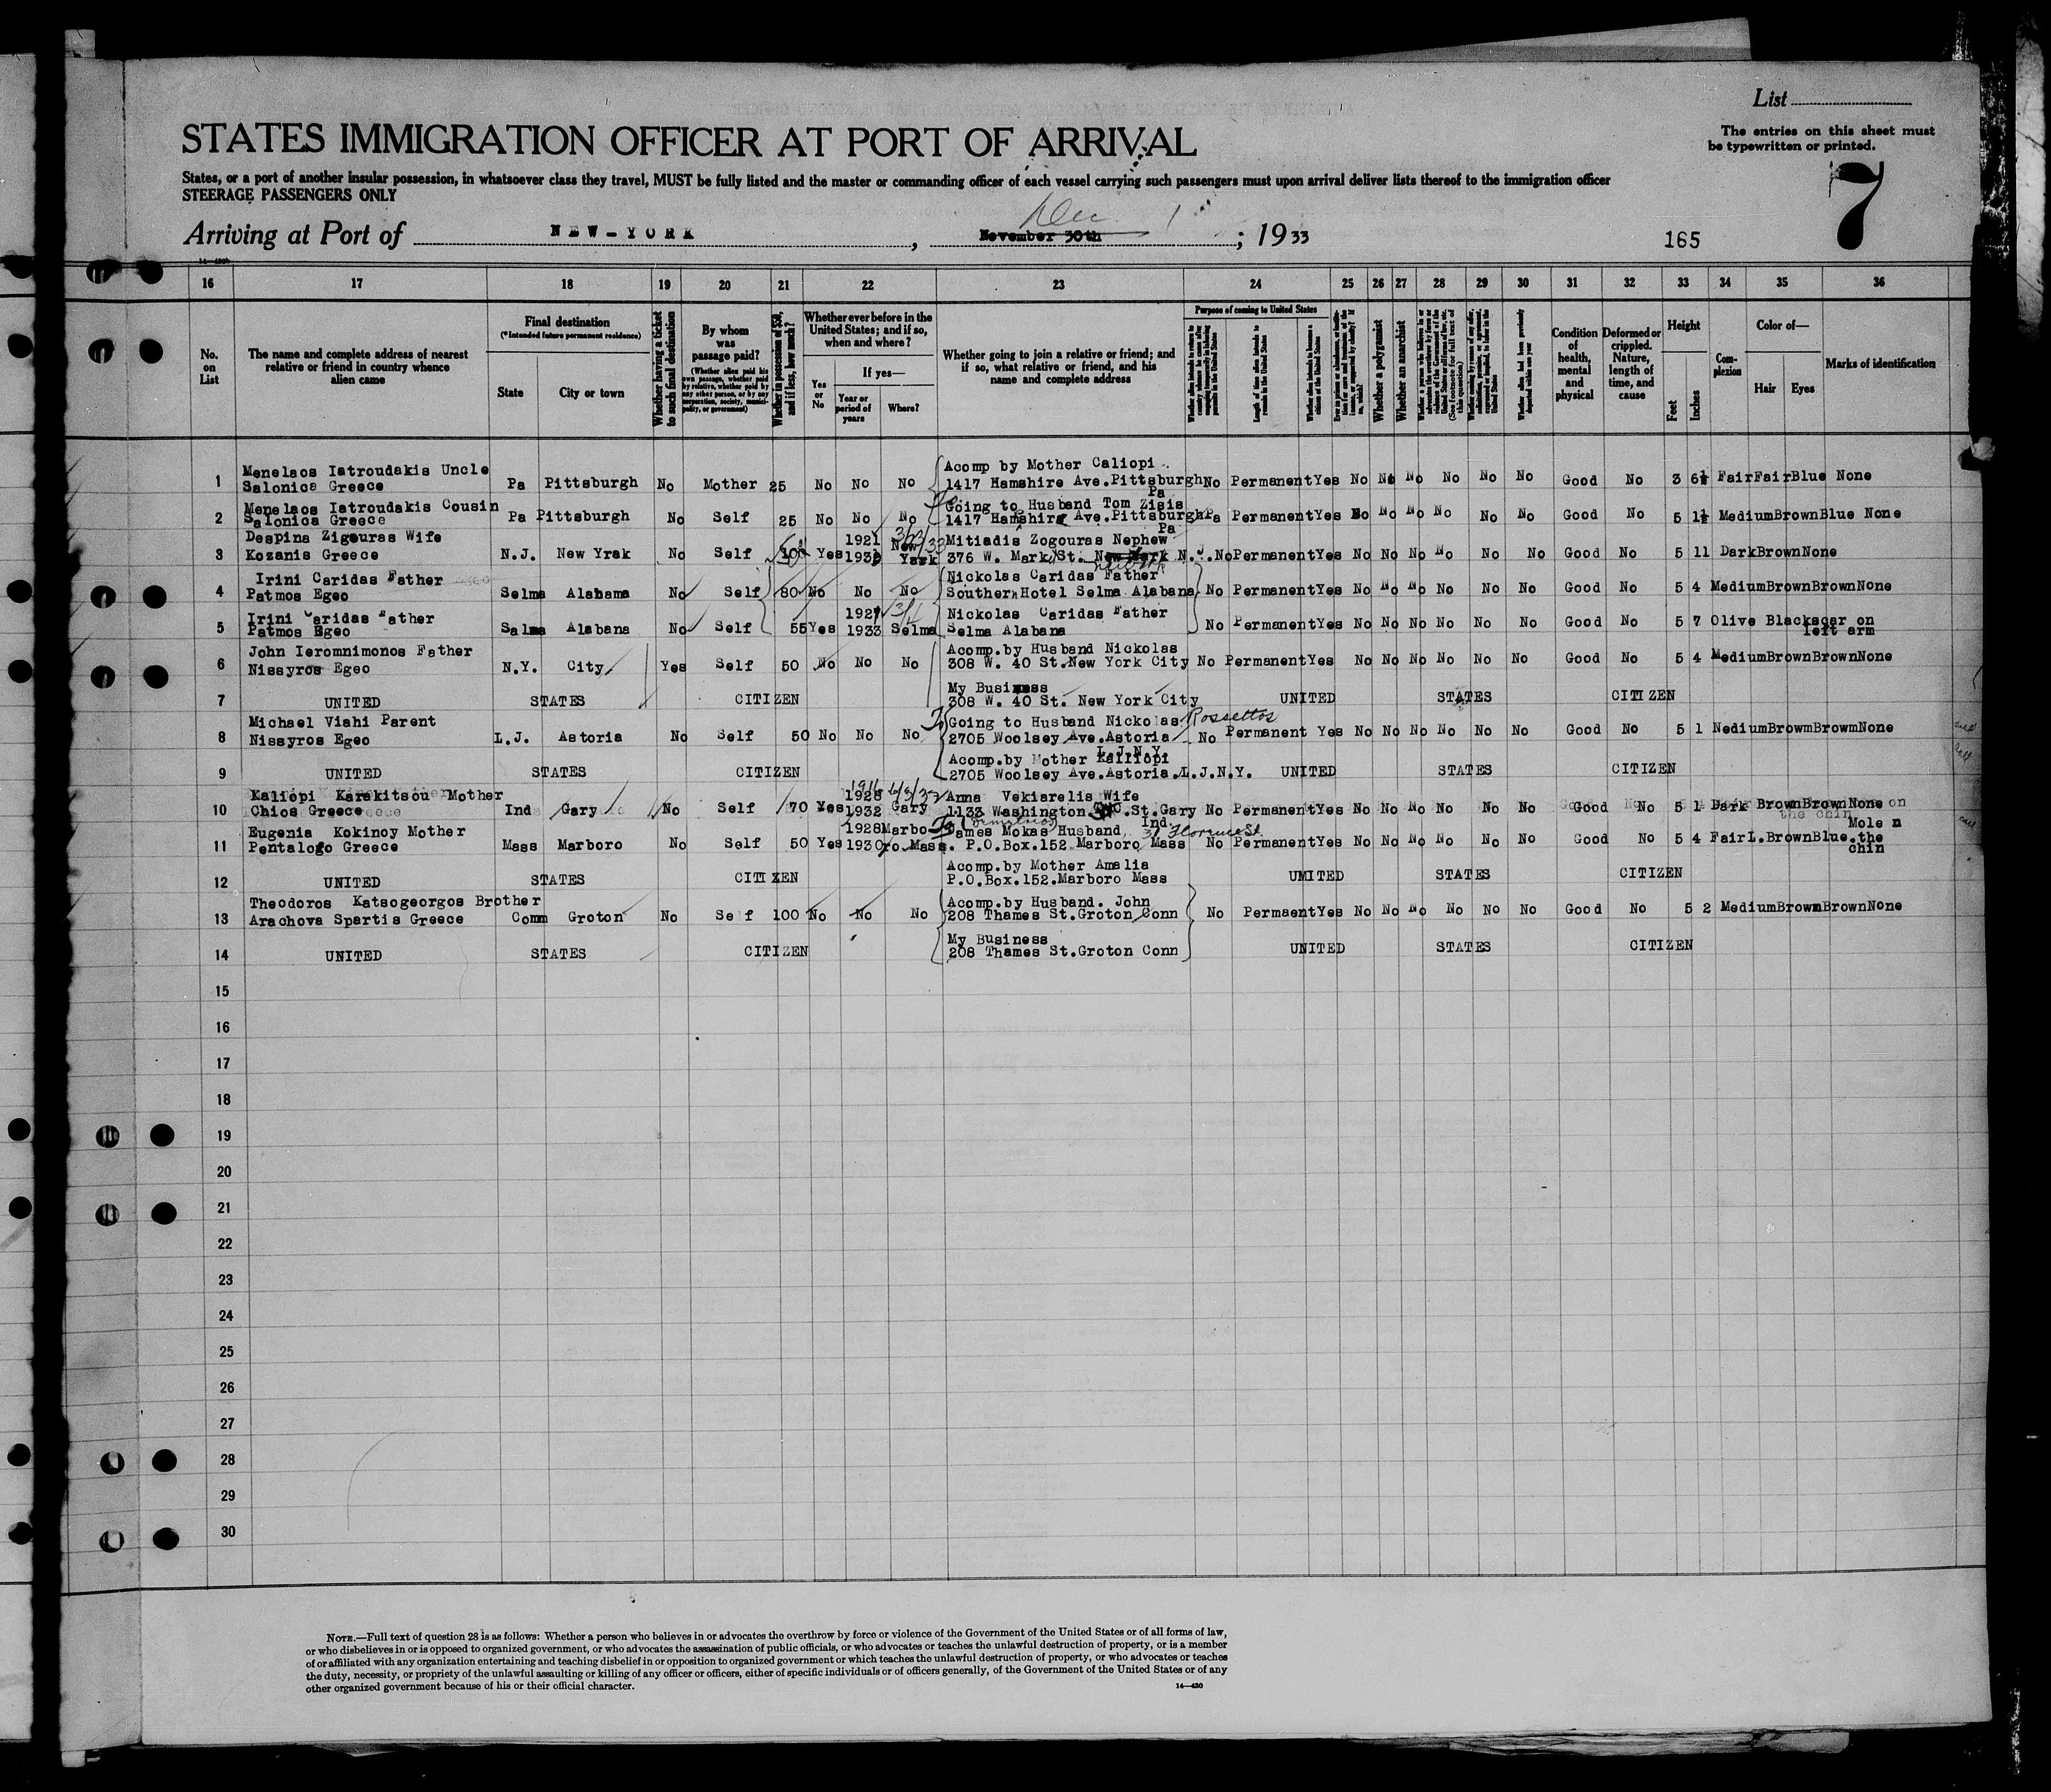 List
The entries on this sheet must
be typewritten or printed.
STATES IMMIGRATION OFFICER AT PORT OF ARRIVAL
7
States, or a port of another insular possession, in whatsoever class they travel, MUST be fully listed and the master or commanding officer of each vessel carrying such passengers must upon arrival deliver lists thereof to the immigration officer
STEERAGE PASSENGERS ONLY
Dec 1
Arriving at Port of NEW-YORK, November 30th; 1933 165
14-430
16 17 18 19 20 21 22 23 24 25 26 27 28 29 30 31 32 33 34 35 36
No. on List
The name and complete address of nearest relative or friend in country whence alien came
Final destination
(*Intended future permanent residence)
State City or town
Whether having a ticket to such final destination
By whom was passage paid?
(Whether alien paid his own passage, whether paid by relative, whether paid by any other person, or by any corporation, society, municipality, or government)
Whether in possession of $50, and if less, how much?
Whether ever before in the United States; and if so, when and where?
Yes or No
If yes—
Year or period of years
Where?
Whether going to join a relative or friend; and if so, what relative or friend, and his name and complete address
Purpose of coming to United States
Length of time alien intends to remain in the United States
Whether alien intends to become a citizen of the United States
Whether a polygamist
Whether an anarchist
Condition of health, mental and physical
Deformed or crippled. Nature, length of time, and cause
Height
Feet Inches
Complexion
Color of—
Hair Eyes
Marks of identification
1 Menelaos Iatroudakis Uncle
Salonica Greece Pa Pittsburgh No Mother 25 No No No
Acomp by Mother Caliopi
1417 Hamshire Ave.Pittsburgh Pa No Permanent Yes No No No No No No Good No 3 6½ Fair Fair Blue None
2 Menelaos Iatroudakis Cousin
Salonica Greece Pa Pittsburgh No Self 25 No No No
To Going to Husband Tom Zisis
1417 Hamshire Ave.Pittsburgh Pa Permanent Yes No No No No No No Good No 5 1½ Medium Brown Blue None
3 Despina Zigouras Wife
Kozanis Greece N.J. New Yrak No Self 100 Yes 1921 1932 New York
Mitiadis Zogouras Nephew
376 W. Mark St. New York Newark N.J. No Permanent Yes No No No No No No Good No 5 11 Dark Brown None
4 Irini Caridas Father
Patmos Egeo Selma Alabama No Self 80 No No No
Nickolas Caridas Father
Southern Hotel Selma Alabana No Permanent Yes No No No No No No Good No 5 4 Medium Brown Brown None
5 Irini Caridas Father
Patmos Egeo Salma Alabana No Self 55 Yes 1921 1933 Selma
Nickolas Caridas Father
Selma Alabana No Permanent Yes No No No No No No Good No 5 7 Olive Black scar on left arm
6 John Ieromnimonos Father
Nissyros Egeo N.Y. City Yes Self 50 No No No
Acomp.by Husband Nickolas
308 W. 40 St.New York City No Permanent Yes No No No No No No Good No 5 4 Medium Brown Brown None
7 UNITED STATES CITIZEN
My Business
308 W. 40 St. New York City UNITED STATES CITIZEN
8 Michael Viahi Parent
Nissyros Egeo L.J. Astoria No Self 50 No No No
To Going to Husband Nickolas Rossettos
2705 Woolsey Ave.Astoria L.J.N.Y. No Permanent Yes No No No No No No Good No 5 1 Nedium Browm Browm None
9 UNITED STATES CITIZEN
Acomp.by Mother Kalliopi
2705 Woolsey Ave.Astoria.L.J.N.Y. UNITED STATES CITIZEN
10 Kaliopi Karakitsou Mother
Chios Greece Ind Gary No Self 70 Yes 1916 1928 1932 Gary
Anna Vekiarelis Wife
1133 Washington St.Gary Ind. No Permanent Yes No No No No No No Good No 5 1 Dark Brown Brown None
11 Eugenia Kokinoy Mother
Pentalofo Greece Mass Marboro No Self 50 Yes 1928 1930 Marboro Mass.
To James Mokas Husband 31 Florence St
P.O.Box.152 Marboro Mass No Permanent Yes No No No No No No Good No 5 4 Fair L.Brown Blue. Mole n the chin
12 UNITED STATES CITIZEN
Acomp.by Mother Amalia
P.O.Box.152.Marboro Mass UMITED STATES CITIZEN
13 Theodoros Katsogeorgos Brother
Arachova Spartis Greece Comm Groton No Self 100 No No No
Acomp.by Husband. John
208 Thames St.Groton Conn No Permaent Yes No No No No No No Good No 5 2 Medium Brown Brown None
14 UNITED STATES CITIZEN
My Business
208 Thames St.Groton Conn UNITED STATES CITIZEN
15
16
17
18
19
20
21
22
23
24
25
26
27
28
29
30
NOTE.—Full text of question 28 is as follows: Whether a person who believes in or advocates the overthrow by force or violence of the Government of the United States or of all forms of law,
or who disbelieves in or is opposed to organized government, or who advocates the assassination of public officials, or who advocates or teaches the unlawful destruction of property, or is a member
of or affiliated with any organization entertaining and teaching disbelief in or opposition to organized government or which teaches the unlawful destruction of property, or who advocates or teaches
the duty, necessity, or propriety of the unlawful assaulting or killing of any officer or officers, either of specific individuals or of officers generally, of the Government of the United States or of any
other organized government because of his or their official character.
14-430